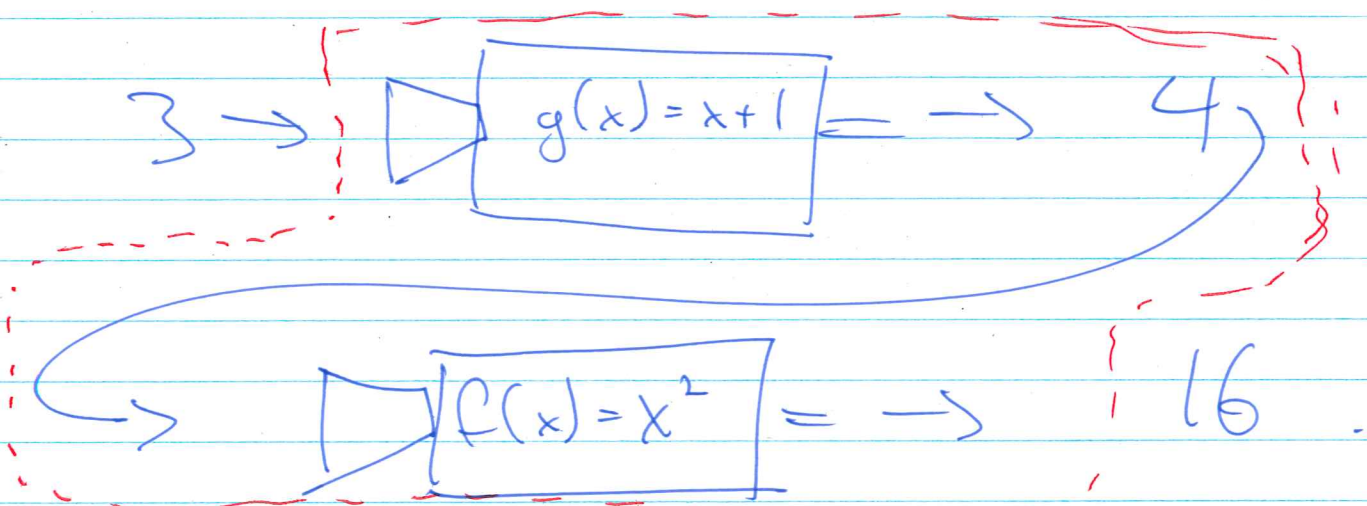 3 → g(x) = x + 1 = → 4
→ f(x) = x² = → 16.